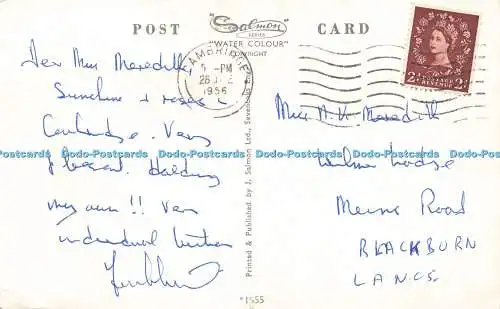 POST
Salmon
SERIES
"WATER COLOUR"
COPYRIGHT
CARD
CAMBRIDGE
5 - PM
1956
2D POSTAGE REVENUE 2D
Dear Miss Meredith,
Sunshine & roses in
Cambridge. Very
pleasant. Holding
my own!! Very
individual tuition
Miss M. K. Meredith
Lodge
Meins Road
BLACKBURN
LANCS.
Printed & Published by J. Salmon Ltd., Sevenoaks
Dodo-Postcards Dodo-Postcards Dodo-Postcards Dodo-Postcards Dodo-Postcards Dodo-Postcards
*1555